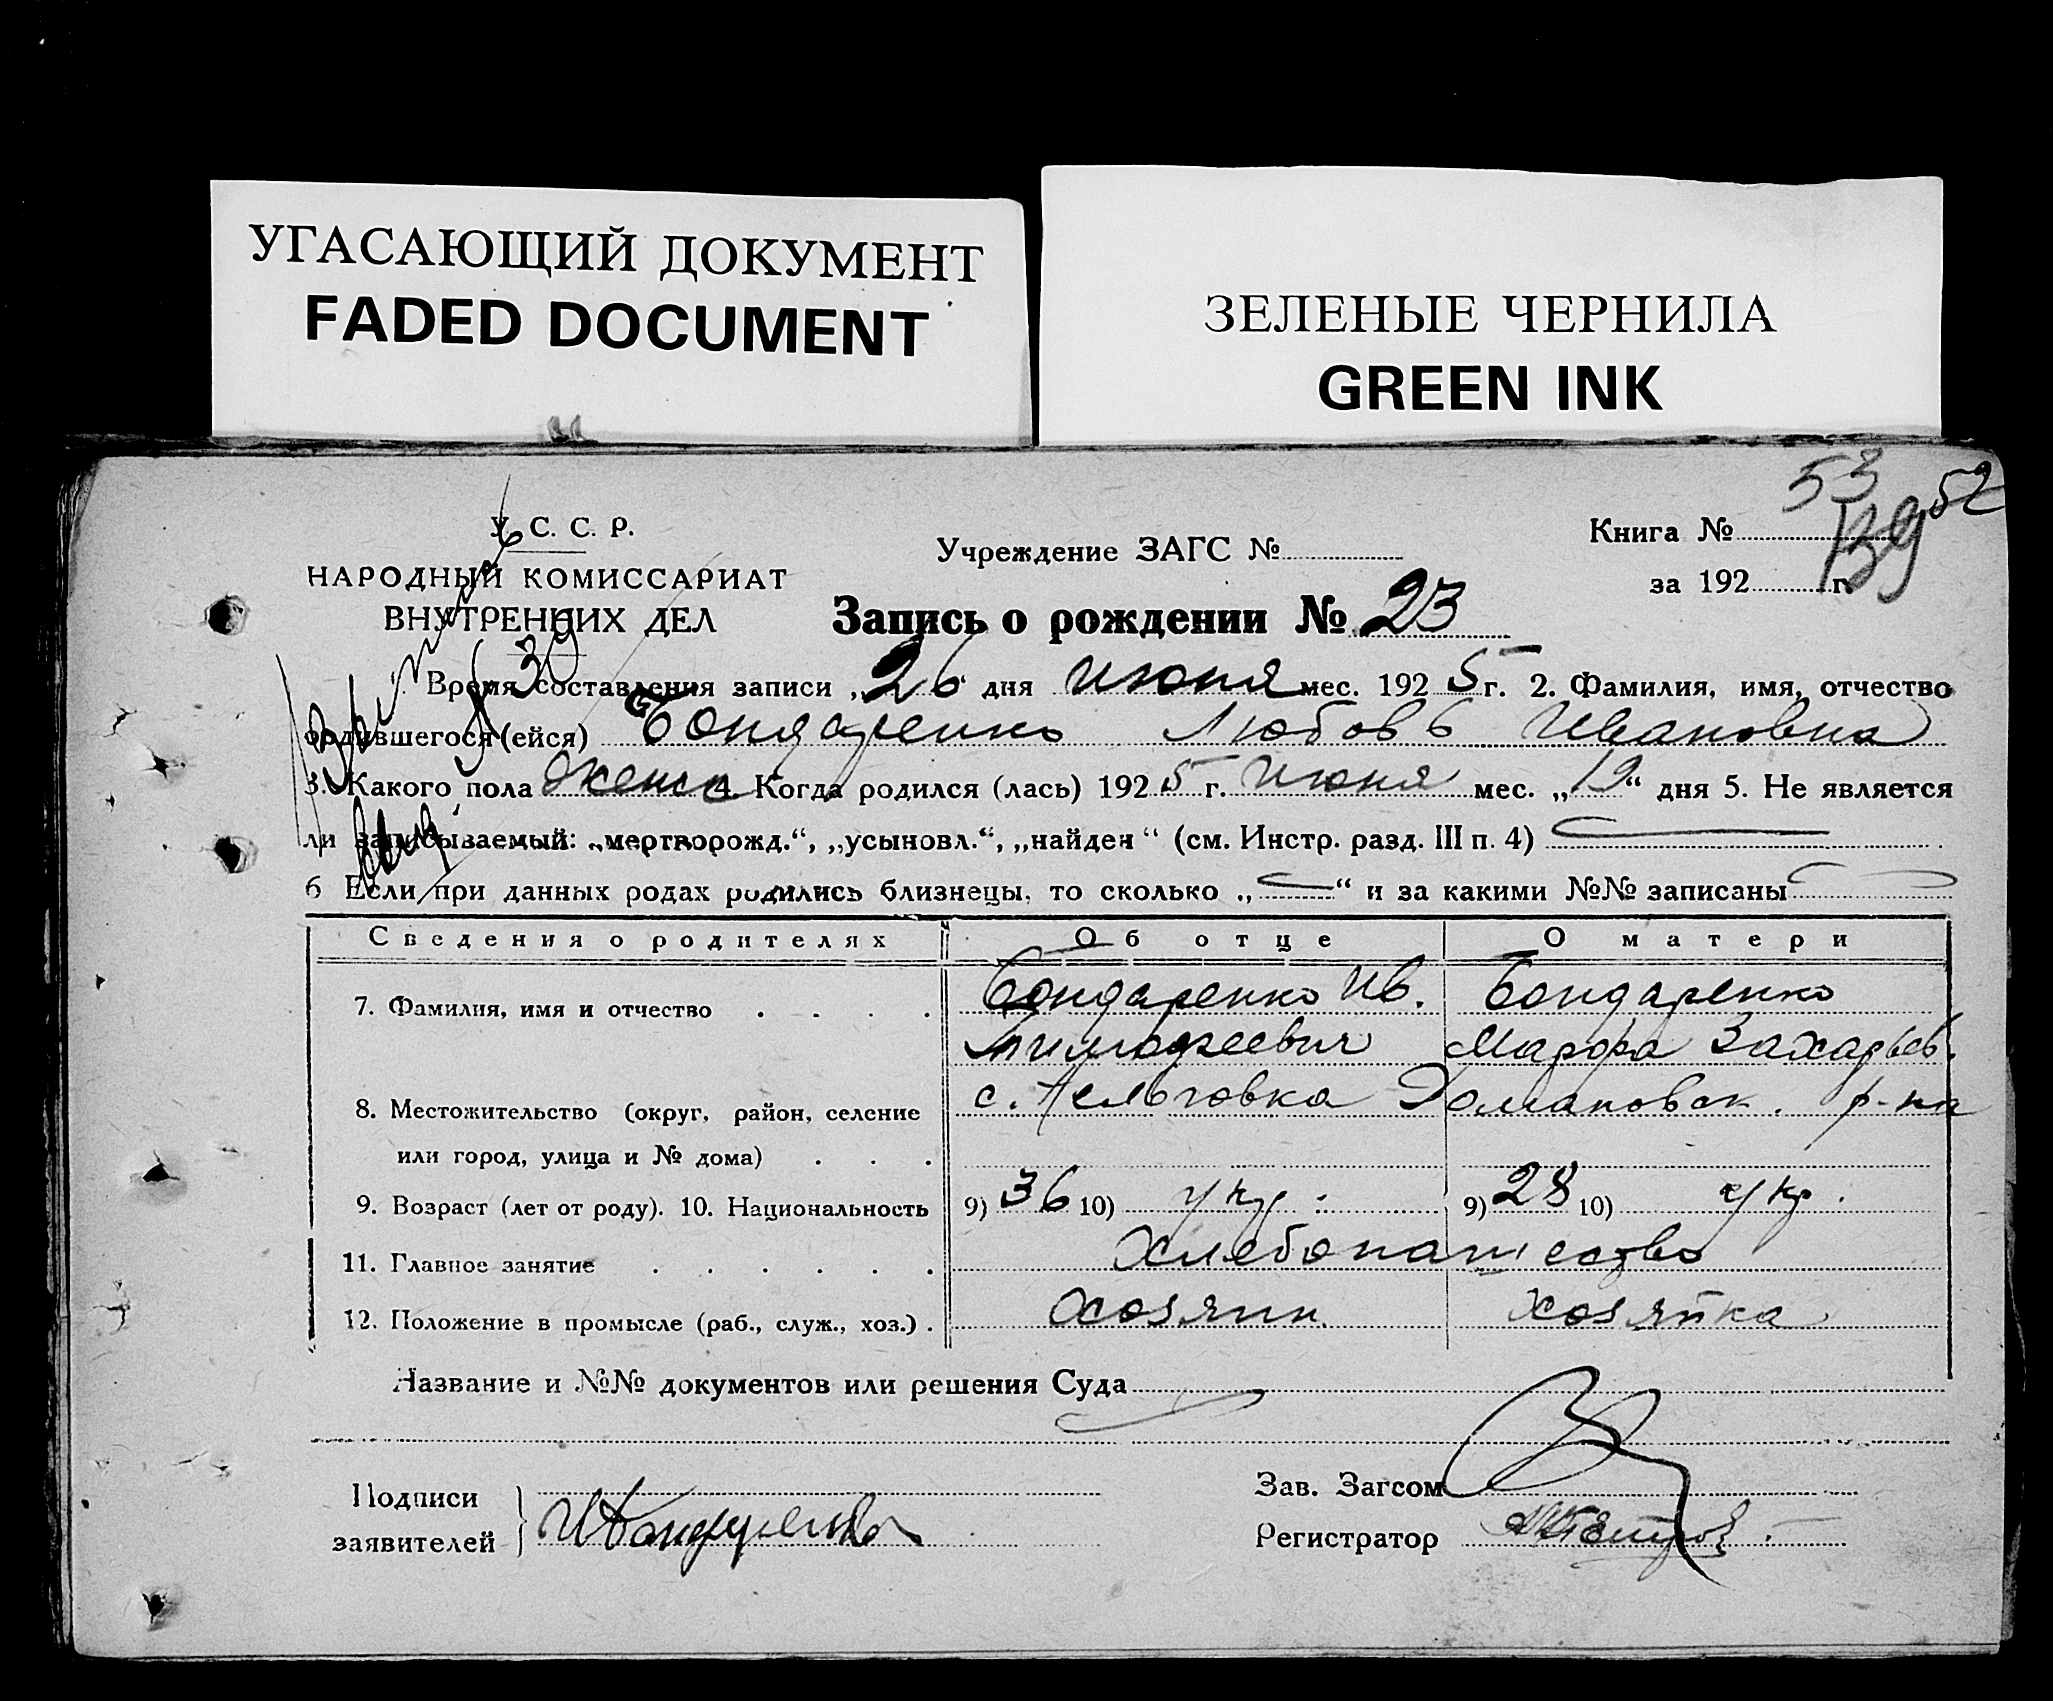 УГАСАЮЩИЙ ДОКУМЕНТ
FADED DOCUMENT
ЗЕЛЕНЫЕ ЧЕРНИЛА
GREEN INK
53
52
139
У. С. С. Р.
НАРОДНЫЙ КОМИССАРИАТ
ВНУТРЕННИХ ДЕЛ
Учреждение ЗАГС №
Книга №
за 192 г.
Запись о рождении № 23
Время составления записи „26“ дня июня мес. 1925 г. 2. Фамилия, имя, отчество
родившегося (ейся) Бондаренко Любовь Ивановна
3. Какого пола женск 4. Когда родился (лась) 1925 г. июня мес. „19“ дня 5. Не является
ли записываемый: „мертворожд.“, „усыновл.“, „найден“ (см. Инстр. разд. III п. 4)
6 Если при данных родах родились близнецы, то сколько „ “ и за какими №№ записаны
Сведения о родителях Об отце О матери
7. Фамилия, имя и отчество Бондаренко Ив. Бондаренко
Тимофеевич Марфа Захарьев.
8. Местожительство (округ, район, селение с. р-на
или город, улица и № дома)
9. Возраст (лет от роду). 10. Национальность 9) 36 10) укр. 9) 28 10) укр.
11. Главное занятие Хлебопашество
12. Положение в промысле (раб., служ., хоз.) хозяин хозяйка
Название и №№ документов или решения Суда
Подписи
заявителей И Бондаренко
Зав. Загсом
Регистратор